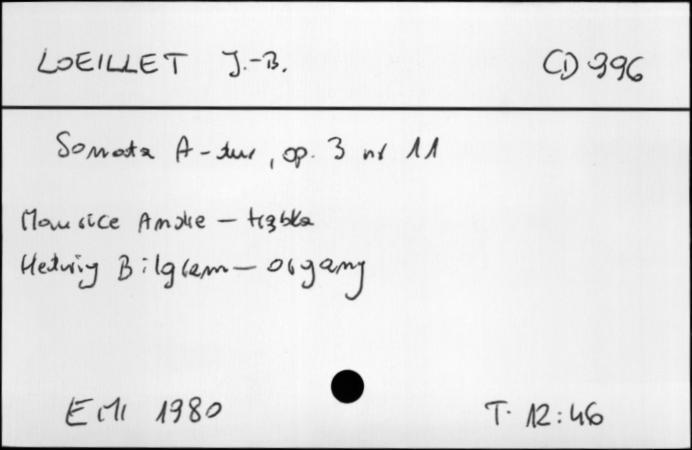 LOEILLET J.-B. CD 396
Sonata A-dur, op. 3 nr 11
Maurice Andre - trąbka
Hedwig Bilgram - organy
EMI 1980 T. 12:46